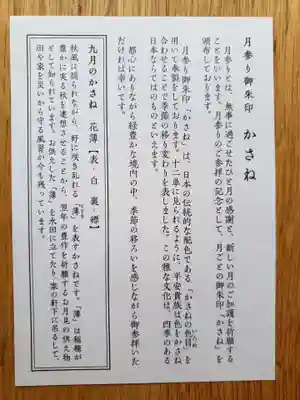 月参り御朱印 かさね
月参りとは、無事に過ごせたひと月の感謝と、新しい月のご加護を祈願する
ことをいいます。月参りのご参拝の記念として、月ごとの御朱印「かさね」を
頒布しております。
月参り御朱印「かさね」は、日本の伝統的な配色である「かさねの色目」を
いろめ
用いて奉製をしております。十二単に見られるように、平安貴族は色をかさね
合わせることで季節の移り変わりを表しました。この様な文化は、四季のある
日本ならではのものといえます。
都心にありながら緑豊かな境内の中、季節の移ろいを感じながら御参拝いた
だければ幸いです。
九月のかさね 花薄【表・白 裏・縹】
秋風に揺られながら、野に咲き乱れる「薄」を表すかさねです。「薄」は稲穂が
豊かに実る秋を連想させることから、翌年の豊作を祈願するお月見の供え物
として知られています。お供えした「薄」を水田に立てたり、家の軒下に吊るして、
田や家を災いから守る風習が今も残っています。